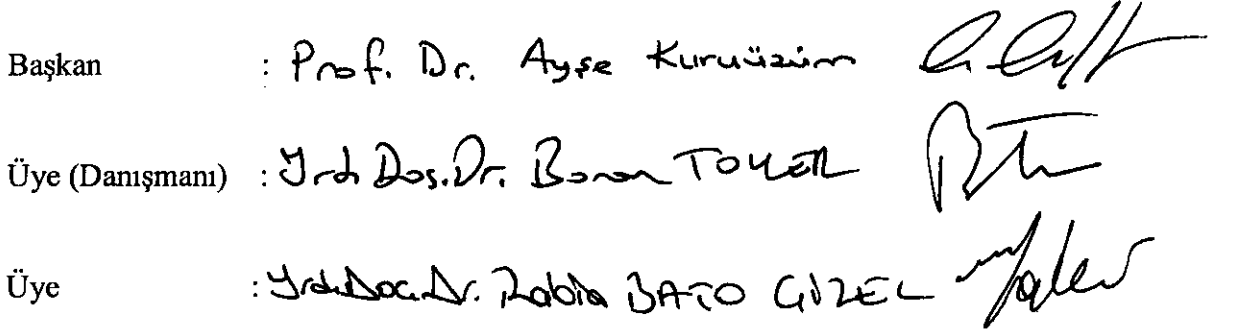 Başkan : Prof. Dr. Ayşe Kuruüzüm
Üye (Danışmanı) : Yrd. Doç. Dr. Boran TOKER
Üye : Yrd. Doç. Dr. Rabia BATO GİZEL